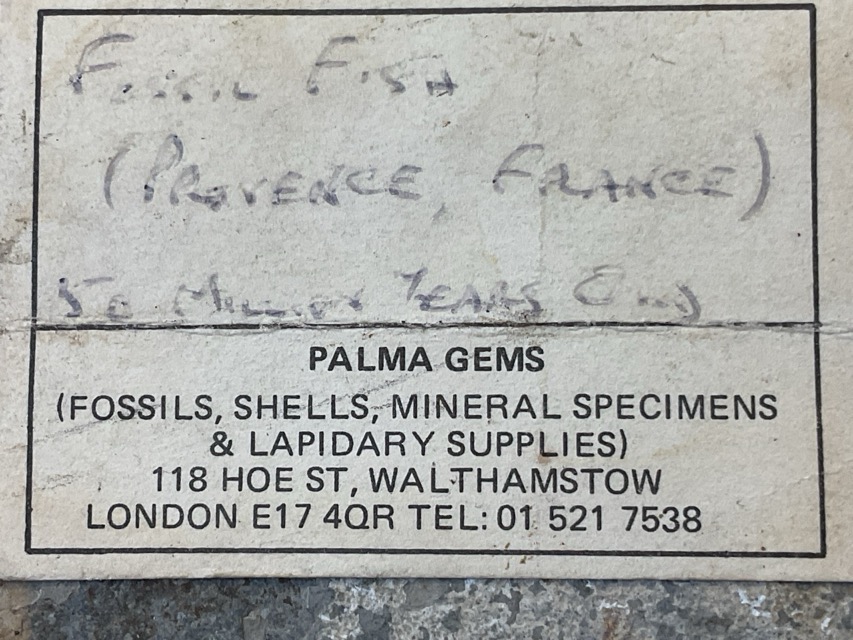 Fossil Fish
(Provence, France)
50 Million Years Old
PALMA GEMS
(FOSSILS, SHELLS, MINERAL SPECIMENS
& LAPIDARY SUPPLIES)
118 HOE ST, WALTHAMSTOW
LONDON E17 4QR TEL: 01 521 7538